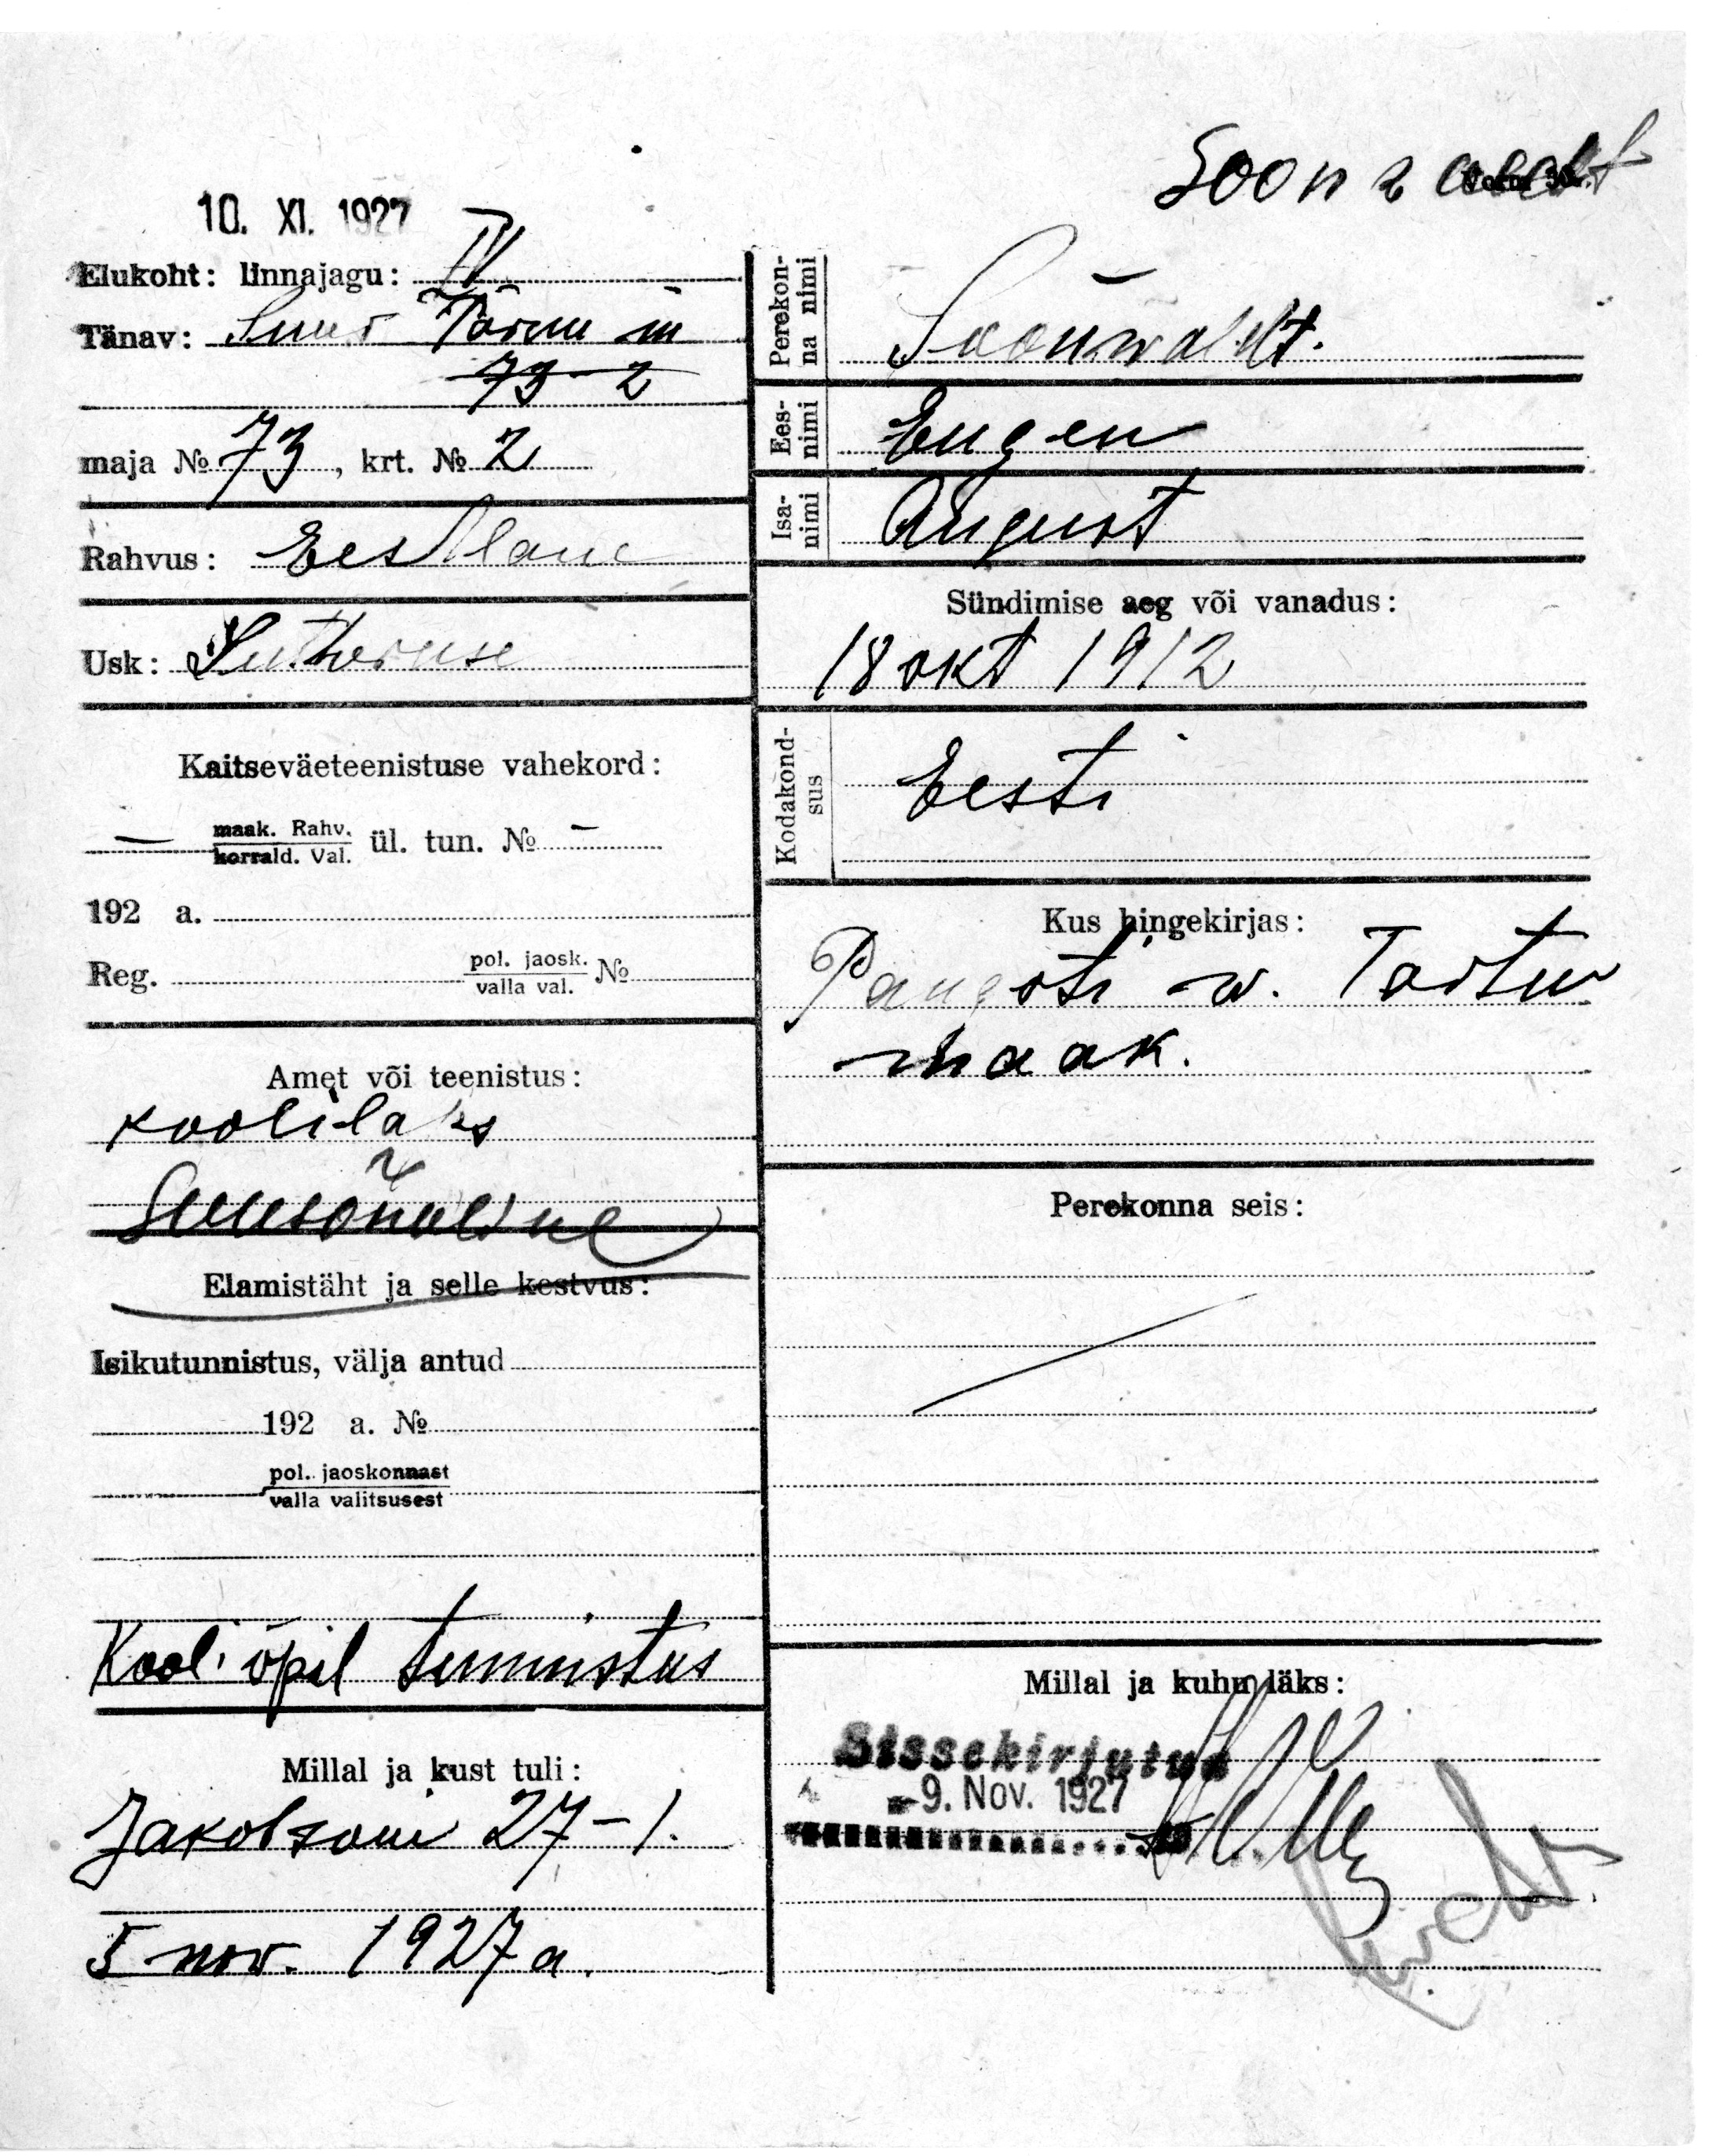 Soonwaldt
10. XI. 1927
Elukoht: linnajagu: IV
Tänav: Suur Pärnu m
73-2
maja № 73, krt. № 2
Rahvus: Eestlane
Usk: Lutheruse
Kaitseväeteenistuse vahekord:
— maak. Rahv.
korrald. Val. ül. tun. № —
192 a.
Reg. pol. jaosk.
valla val. №
Amet või teenistus:
koolilaps
Suusõnaline
Elamistäht ja selle kestvus:
Isikutunnistus, välja antud
192 a. №
pol. jaoskonnast
valla valitsusest
Kooli õpil tunnistus
Millal ja kust tuli:
Jakobsoni 27-1.
5 nov. 1927 a.
Perekon-
na nimi
Soonwaldt.
Ees-
nimi
Eugen
Isa-
nimi
August
Sündimise aeg või vanadus:
18 okt 1912
Kodakond-
sus
Eesti
Kus hingekirjas:
Pangoti w. Tartu
maak.
Perekonna seis:
Millal ja kuhu läks:
Sissekirjutud
9. Nov. 1927